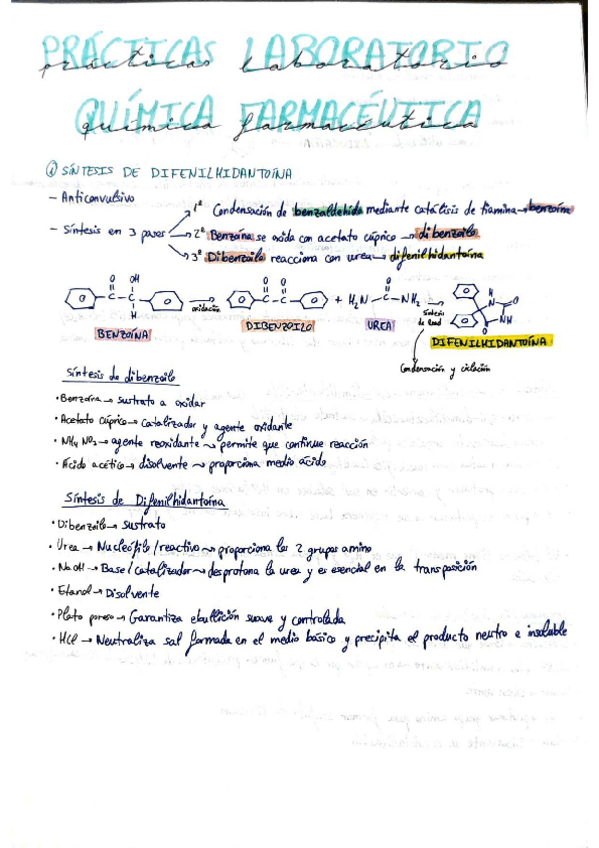 PRÁCTICAS LABORATORIO
prácticas laboratorio
QUÍMICA FARMACÉUTICA
química farmacéutica
① SÍNTESIS DE DIFENILHIDANTOÍNA
- Anticonvulsivo
- Síntesis en 3 pasos
1º Condensación de benzaldehido mediante catálisis de tiamina → benzoína
2º Benzoína se oxida con acetato cúprico → dibenzoilo
3º Dibenzoilo reacciona con urea → difenilhidantoína
O OH
C - C
H
oxidación
O O
C - C
+ H₂N - C - NH₂
O
Síntesis de
H
N
O
NH
O
BENZOÍNA
DIBENZOILO
UREA
DIFENILHIDANTOÍNA
Condensación y ciclación
Síntesis de dibenzoilo
· Benzoína → sustrato a oxidar
· Acetato cúprico → catalizador y agente oxidante
· NH₄ NO₃ → agente reoxidante → permite que continue reacción
· Ácido acético → disolvente → proporciona medio ácido
Síntesis de Difenilhidantoína
· Dibenzoilo → sustrato
· Urea → Nucleófilo / reactivo → proporciona los 2 grupos amino
· NaOH → Base / catalizador → desprotona la urea y es esencial en la transposición
· Etanol → Disolvente
· Plato poroso → Garantiza ebullición suave y controlada
· HCl → Neutraliza sal formada en el medio básico y precipita el producto neutro e insoluble